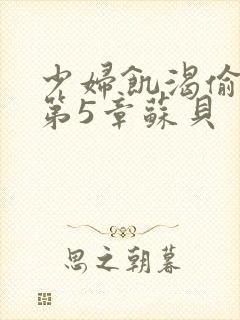 少婦飢渴偷
第5章蘇貝
思之朝暮